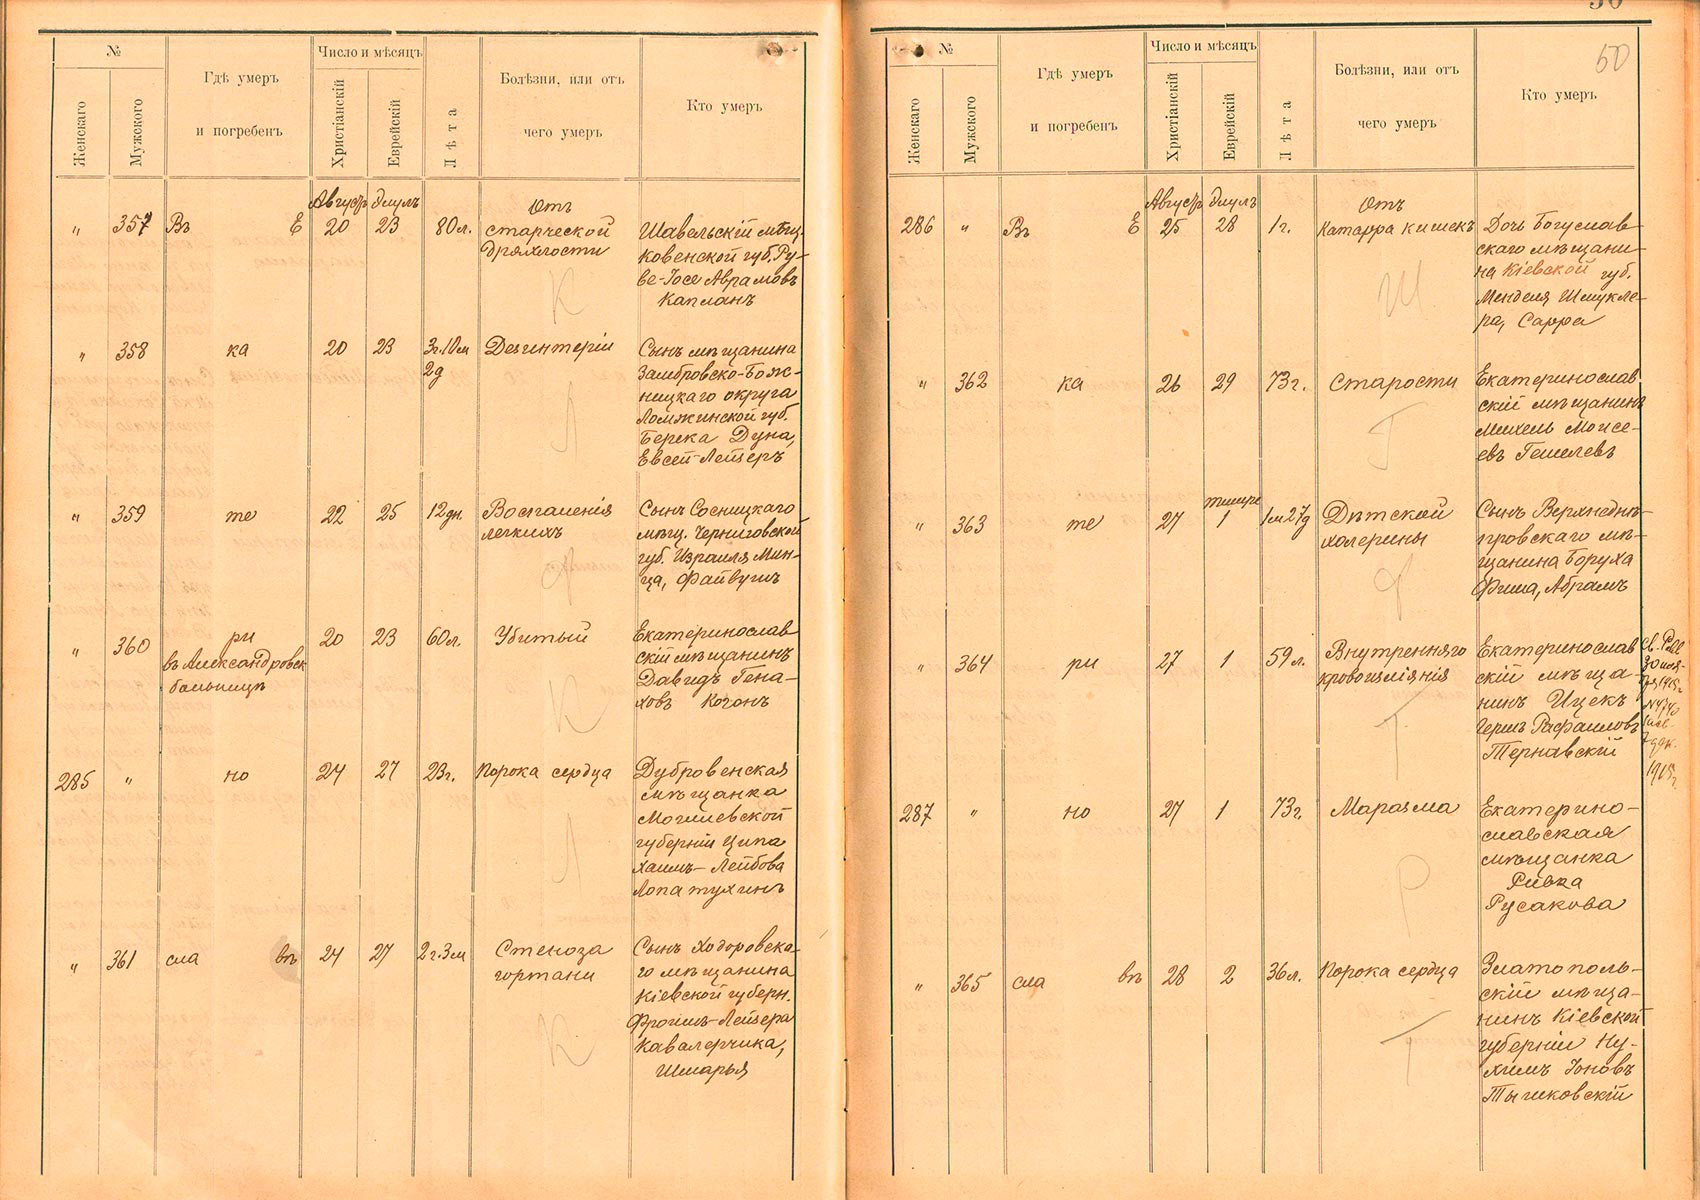 №
Женскаго
Мужского
Гдѣ умеръ
и погребенъ
Число и мѣсяцъ
Христіанскій
Еврейскій
Лѣта
Болѣзни, или отъ
чего умеръ
Кто умеръ
Август Элулъ
„ 357 Въ Е 20 23 80 л.
Отъ
старческой
дряхлости
К
Шавельскій мѣщ.
Ковенской губ. Ру-
ве-Іосе Аврамовъ
Капланъ
„ 358 ка 20 23 3г.10м
2д
Дезинтеріи
Л
Сынъ мѣщанина
Замбровско-Бож-
ницкаго округа
Ломжинской губ.
Берека Дуна,
Евсей-Лейзеръ
„ 359 те 22 25 12дн.
Воспаленія
легкихъ
Ф
Сынъ Сосницкаго
мѣщ. Черниговской
губ. Израиля Мин-
ца, Файвушъ
„ 360 ри 20 23 60л.
въ Александровск
больницѣ
Убитый
К
Екатеринослав
скій мѣщанинъ
Давидъ Гена-
ховъ Коганъ
285 „ но 24 27 23г.
Порока сердца
Л
Дубровенская
мѣщанка
Могилевской
губерніи Ципа
Хаимъ-Лейбова
Лопатухинъ
„ 361 сла вѣ 24 27 2г.3м
Стеноза
гортани
К
Сынъ Ходоровска-
го мѣщанина
Кіевской губерн.
Фроимъ-Лейзера
Кавалерчика,
Шмарья
50
№
Женскаго
Мужского
Гдѣ умеръ
и погребенъ
Число и мѣсяцъ
Христіанскій
Еврейскій
Лѣта
Болѣзни, или отъ
чего умеръ
Кто умеръ
50
Август Элулъ
286 „ Въ Е 25 28 1г.
Отъ
Катарра кишекъ
Ш
Дочь Богуслав
скаго мѣщани-
на Кіевской губ.
Менделя Шмукле-
ра, Сарра
„ 362 ка 26 29 73г.
Старости
Г
Екатеринослав
скій мѣщанинъ
Михель Моисе-
евъ Гешелевъ
Тишре
„ 363 те 27 1 1м27д
Дѣтской
холерины
Ф
Сынъ Верхнеднѣ-
провскаго мѣ-
щанина Боруха
Фиша, Абрамъ
„ 364 ри 27 1 59 л.
Внутренняго
кровоизліянія
Т
Екатеринослав
скій мѣща-
нинъ Ицекъ
Гершъ Рафаиловъ
Тернавскій
287 „ но 27 1 73г.
Маразма
Р
Екатерино-
славская
мѣщанка
Ривка
Русакова
„ 365 сла вѣ 28 2 36л.
Порока сердца
Т
Златополь-
скій мѣща-
нинъ Кіевской
губерніи Ну-
химъ Іоновъ
Тышковскій
1915г.